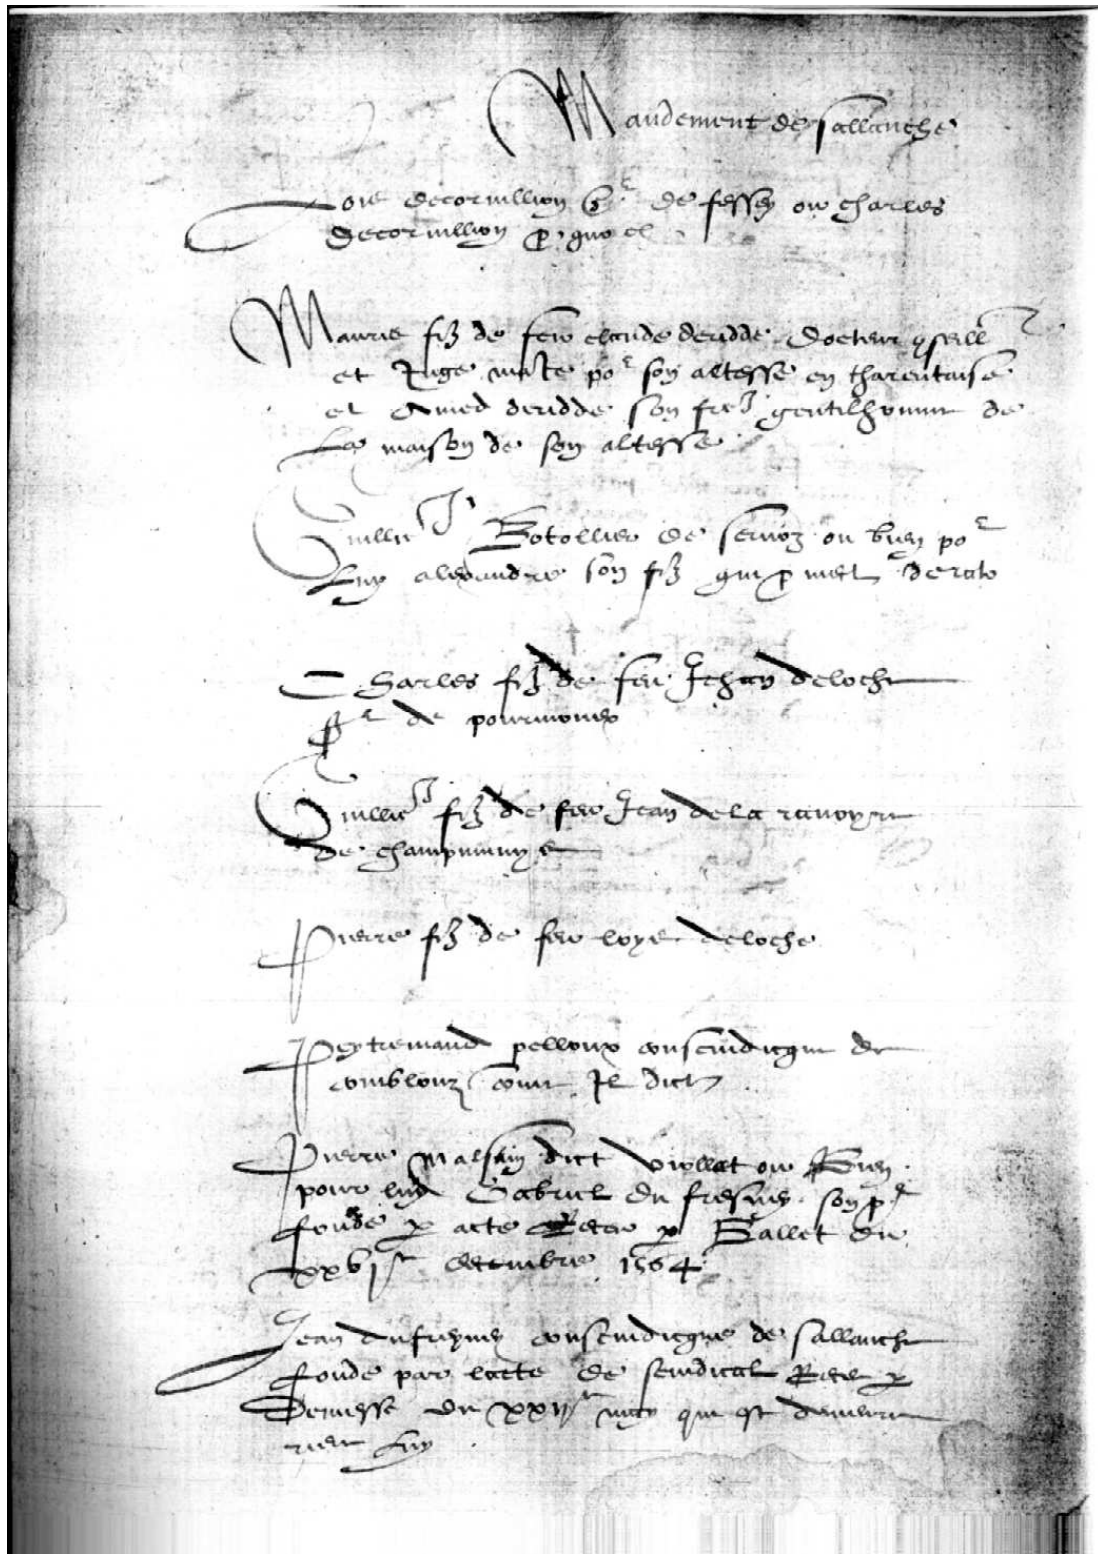 Mandement de Sallanche
Lois decornillion Sr de fessy ou charles
decornillion
Maurie filz de feu claude deridde docteur
et Juge maie por son altesse en tharentaise
et Amed deridde son frer gentilhomme de
La maison de son altesse
Guille Botollier de servoz ou bien por
Luy alexandre son filz qui p met de rato
Charles filz de feu Jehan deloche
Sr de pourmonex
Guille filz de feu Jean de la ravoyre
de
Pierre filz de feu loye deloche
Peytremand pelloux consendicque de
combloux comme Il dict
Pierre malsain dict violлat ou Bien
pour luy Gabriel du fresney son pr
fonde p acte Receu p Ballet du
xxvje decembre 1564
Jean dufresney consendicque de sallanche
fonde par lacte de sendicat Receu p
du may qui est demeure
Luy